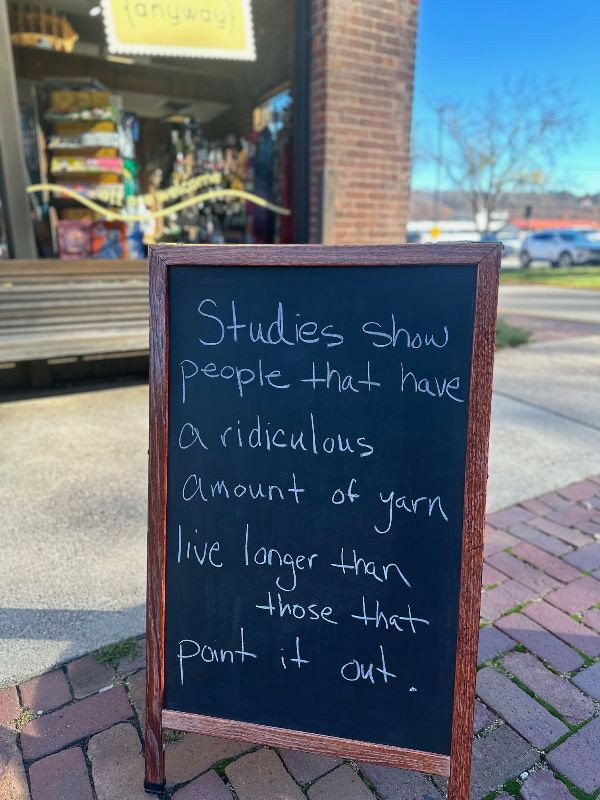 {anyway}
welcome
Studies show
people that have
a ridiculous
amount of yarn
live longer than
those that
point it out.